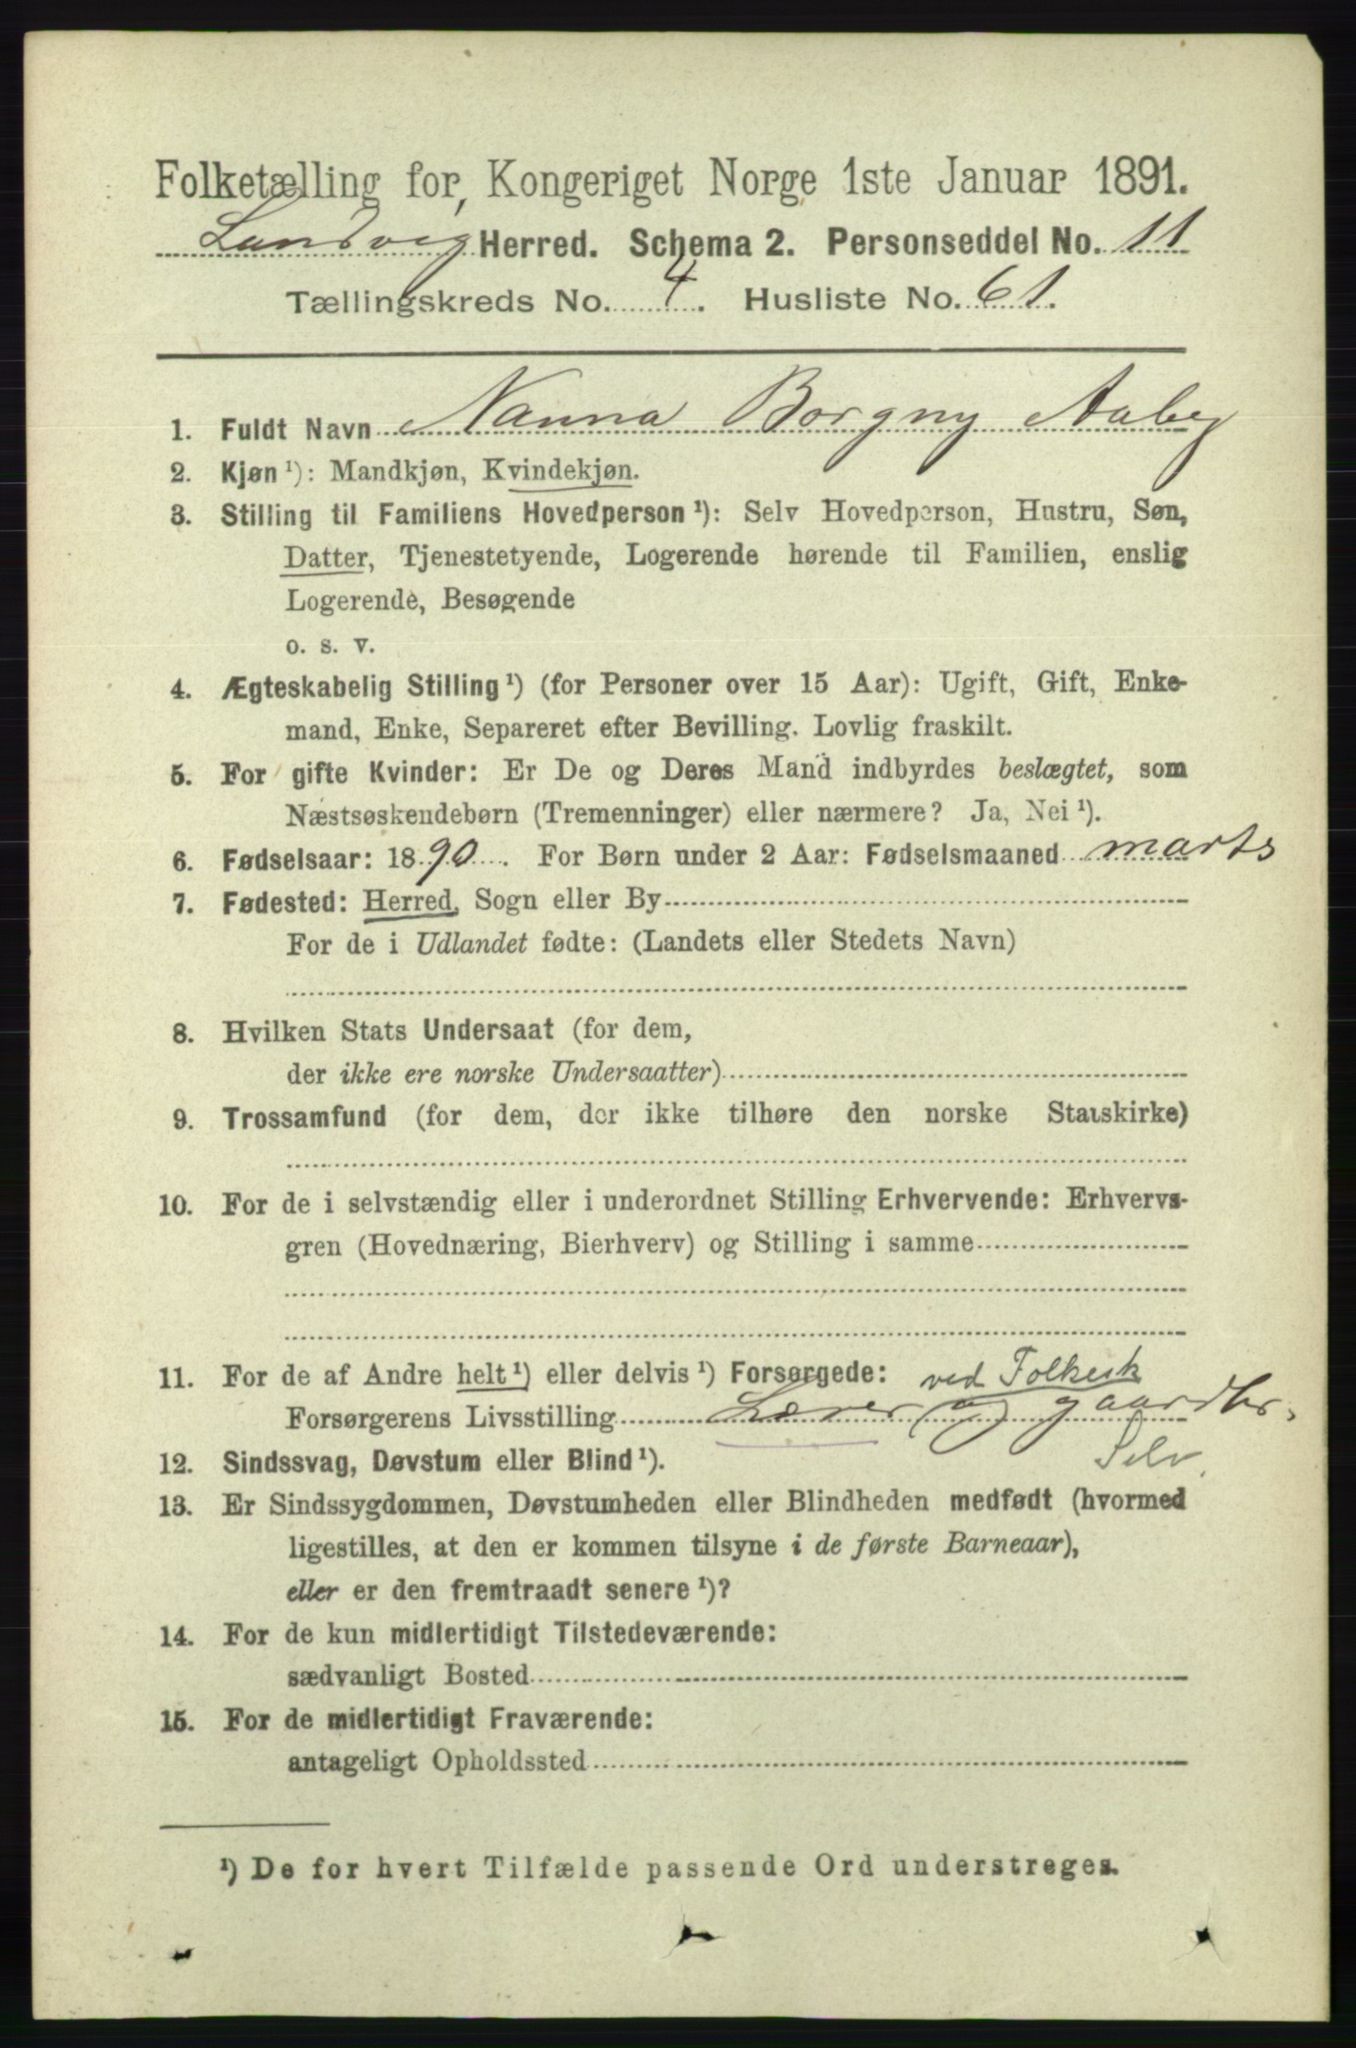 Folketælling for Kongeriget Norge 1ste Januar 1891.
Landvig Herred. Schema 2. Personseddel No. 11
Tællingskreds No. 4. Husliste No. 61.
1. Fuldt Navn Nanna Borgny Aaby
2. Kjøn ¹): Mandkjøn, Kvindekjøn.
3. Stilling til Familiens Hovedperson ¹): Selv Hovedperson, Hustru, Søn,
Datter, Tjenestetyende, Logerende hørende til Familien, enslig
Logerende, Besøgende
o. s. v.
4. Ægteskabelig Stilling ¹) (for Personer over 15 Aar): Ugift, Gift, Enke-
mand, Enke, Separeret efter Bevilling. Lovlig fraskilt.
5. For gifte Kvinder: Er De og Deres Mand indbyrdes beslægtet, som
Næstsøskendebørn (Tremenninger) eller nærmere? Ja, Nei ¹).
6. Fødselsaar: 1890. For Børn under 2 Aar: Fødselsmaaned marts
7. Fødested: Herred, Sogn eller By
For de i Udlandet fødte: (Landets eller Stedets Navn)
8. Hvilken Stats Undersaat (for dem,
der ikke ere norske Undersaatter)
9. Trossamfund (for dem, der ikke tilhøre den norske Statskirke)
10. For de i selvstændig eller i underordnet Stilling Erhvervende: Erhvervs-
gren (Hovednæring, Bierhverv) og Stilling i samme
11. For de af Andre helt ¹) eller delvis ¹) Forsørgede: ved Folkesk
Forsørgerens Livsstilling Lærer og gaardbr.
12. Sindssvag, Døvstum eller Blind ¹). Selv.
13. Er Sindssygdommen, Døvstumheden eller Blindheden medfødt (hvormed
ligestilles, at den er kommen tilsyne i de første Barneaar),
eller er den fremtraadt senere ¹)?
14. For de kun midlertidigt Tilstedeværende:
sædvanligt Bosted
15. For de midlertidigt Fraværende:
antageligt Opholdssted
¹) De for hvert Tilfælde passende Ord understreges.